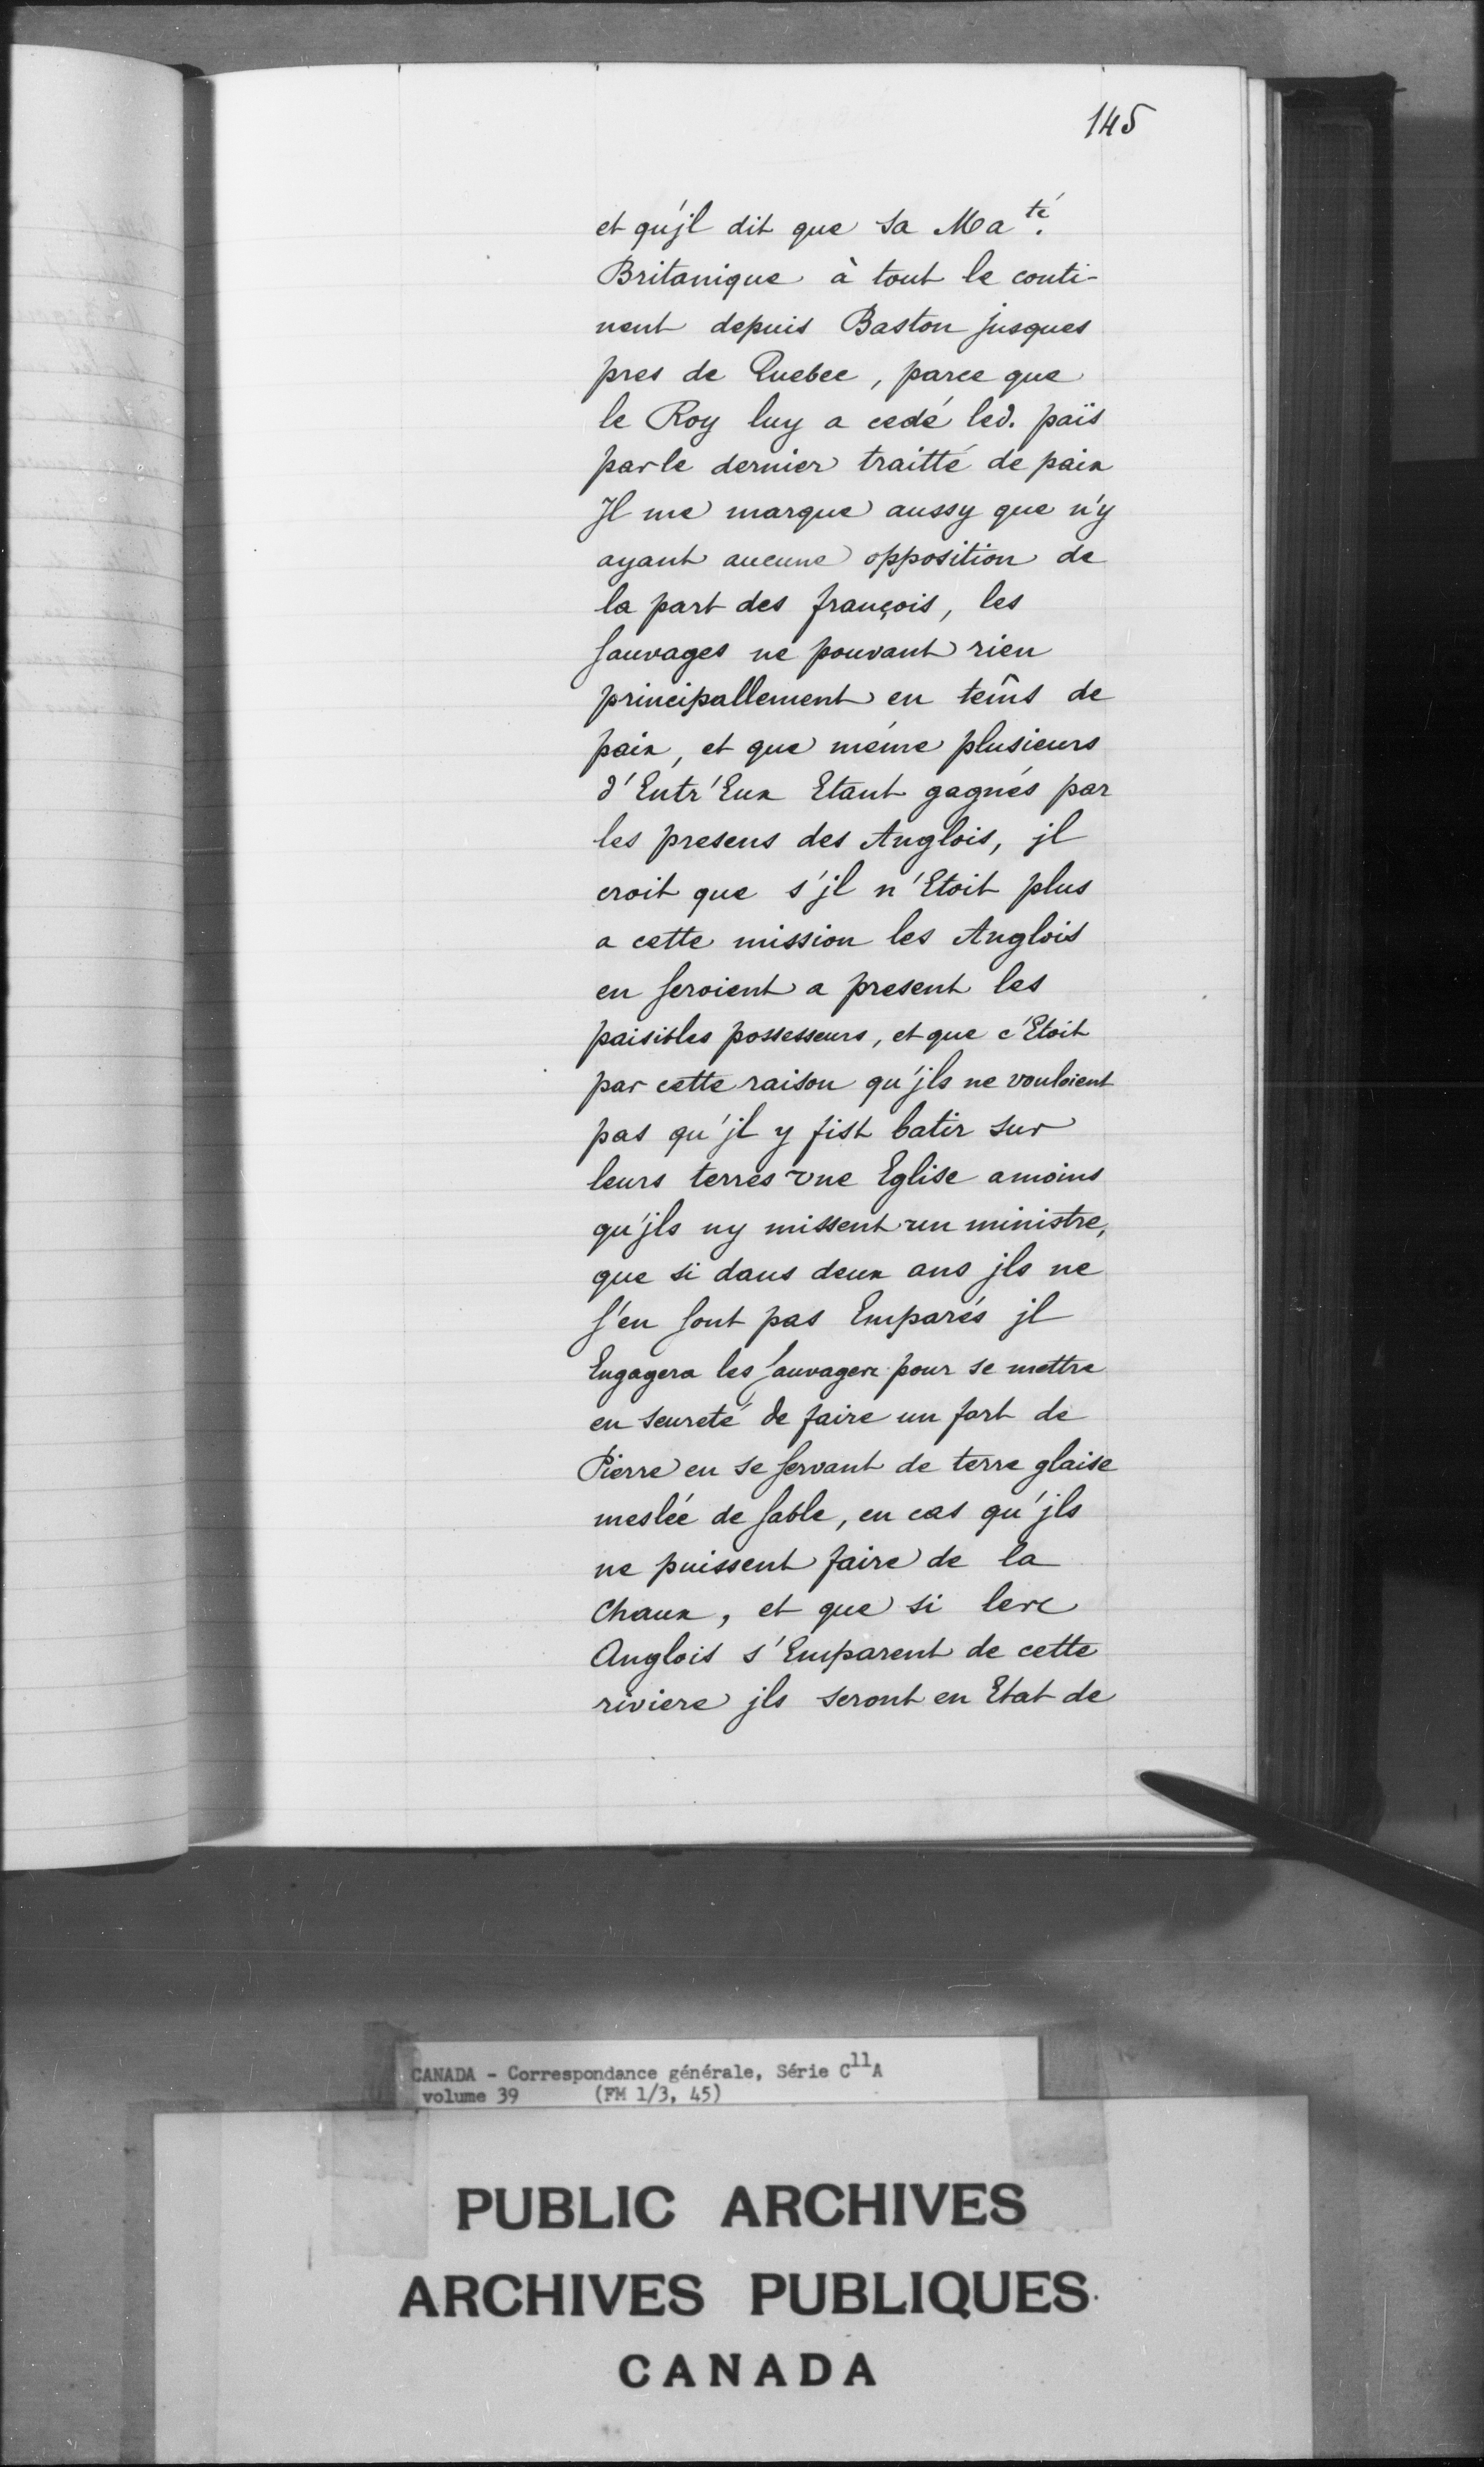 145
et qu'jl dit que sa Ma té.
Britanique à tout le conti-
nent depuis Baston jusques
pres de Quebec, parce que
le Roy luy a cedé led. païs
par le dernier traitté de paix
Jl me marque aussy que n'y
ayant aucune opposition de
la part des françois, les
sauvages ne pouvant rien
principallement en tems de
paix, et que méme plusieurs
d'Entr'Eux Etant gagnés par
les presens des Anglois, jl
croit que s'jl n'Etoit plus
a cette mission les Anglois
en seroient a present les
paisibles possesseurs, et que c'Etoit
par cette raison qu'jls ne vouloient
pas qu'jl y fist batir sur
leurs terres vne Eglise amoins
qu'jls ny missent un ministre,
que si dans deux ans jls ne
s'en sont pas Emparés jl
Engagera les sauvages pour se mettre
en seureté de faire un fort de
Pierre en se servant de terre glaise
meslée de sable, en cas qu'jls
ne puissent faire de la
Chaux, et que si les
Anglois s'Emparent de cette
riviere jls seront en Etat de
CANADA - Correspondance générale, Série C11A
volume 39 (FM 1/3, 45)
PUBLIC ARCHIVES
ARCHIVES PUBLIQUES
CANADA